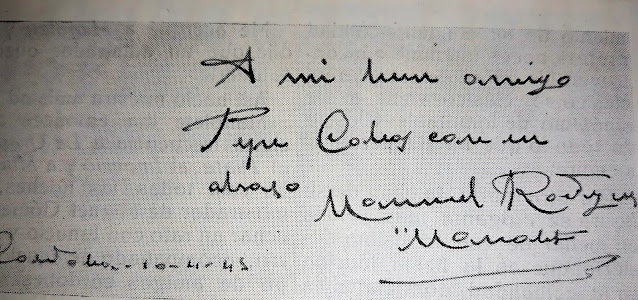 A mi buen amigo
Pepe Cobos con un
abrazo Manuel Rodríguez
"Manolete"
Cordoba